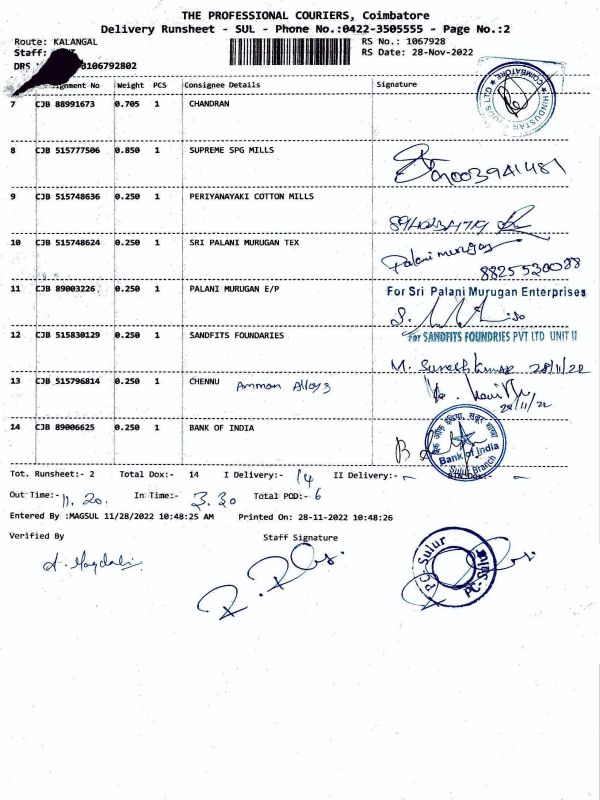 THE PROFESSIONAL COURIERS, Coimbatore
Delivery Runsheet - SUL - Phone No.:0422-3505555 - Page No.:2
Route: KALANGAL RS No.: 1067928
Staff: RS Date: 28-Nov-2022
DRS 3106792802
ignment No Weight PCS Consignee Details Signature
7 CJB 88991673 0.705 1 CHANDRAN
HINDUSTAN COIMBATORE
8 CJB 515777506 0.850 1 SUPREME SPG MILLS
9003941481
9 CJB 515748636 0.250 1 PERIYANAYAKI COTTON MILLS
10 CJB 515748624 0.250 1 SRI PALANI MURUGAN TEX
Palani murugan
8825530088
11 CJB 89003226 0.250 1 PALANI MURUGAN E/P For Sri Palani Murugan Enterprises
12 CJB 515830129 0.250 1 SANDFITS FOUNDARIES For SANDFITS FOUNDRIES PVT LTD UNIT II
M. Suresh Kumar 28/11/22
13 CJB 515796814 0.250 1 CHENNU Amman Alloys
28/11/22
14 CJB 89006625 0.250 1 BANK OF INDIA
Bank of India
Sulur Branch
Tot. Runsheet:- 2 Total Dox:- 14 I Delivery:- 14 II Delivery:- ~
Out Time:- 11.20. In Time:- 3.30 Total POD:- 6
Entered By :MAGSUL 11/28/2022 10:48:25 AM Printed On: 28-11-2022 10:48:26
Verified By Staff Signature
PC-Sulur
PC-Sulur